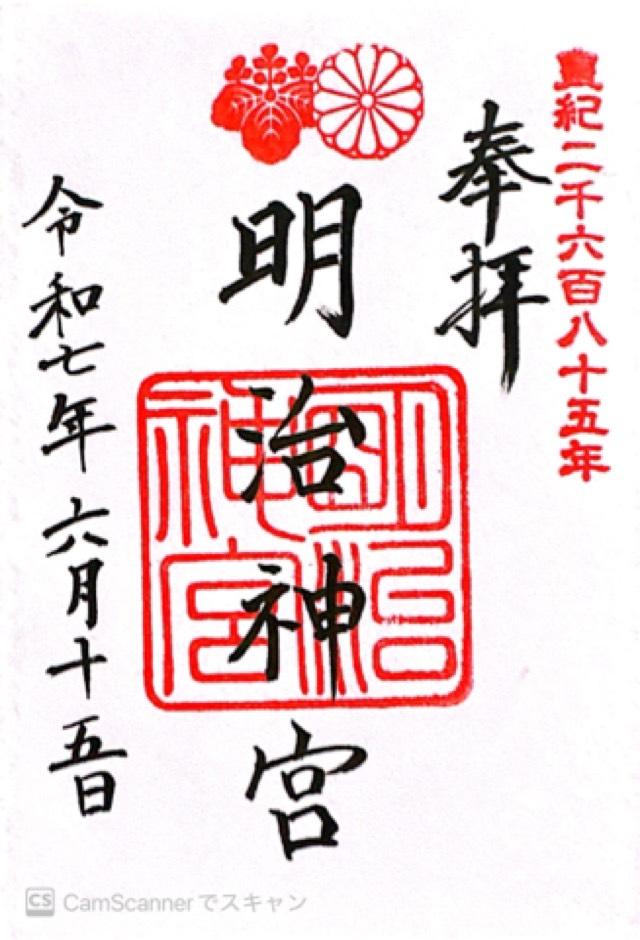 皇紀二千六百八十五年
奉拝
明治神宮
明治神宮
令和七年六月十五日
CS CamScannerでスキャン